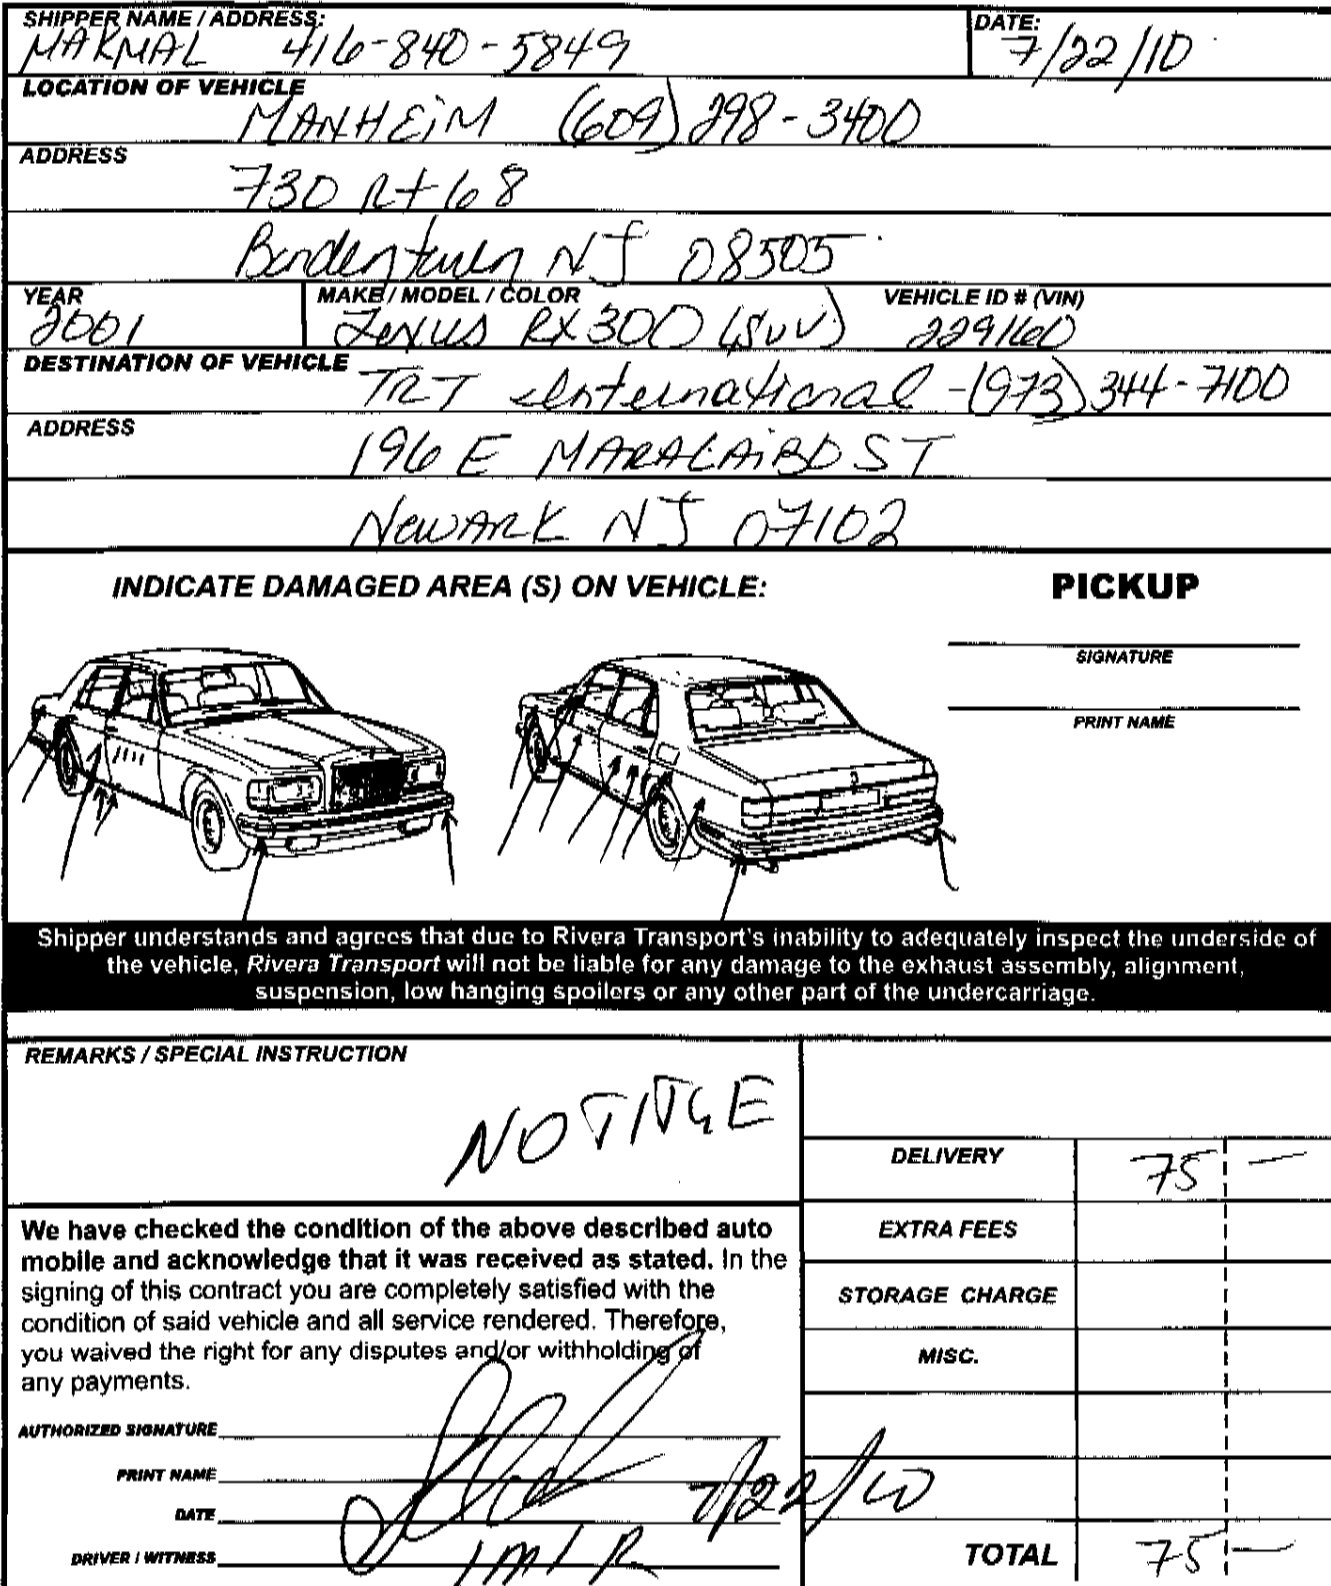 SHIPPER NAME / ADDRESS: DATE:
MARMAL 416-840-5849 7/22/10
LOCATION OF VEHICLE
MANHEIM (609) 298-3400
ADDRESS
730 Rt 68
Bordentown NJ 08505
YEAR MAKE / MODEL / COLOR VEHICLE ID # (VIN)
2001 Lexus RX300 (SUV) 229160
DESTINATION OF VEHICLE
TRT International - (973) 344-7100
ADDRESS
196 E MARACAIBO ST
NEWARK NJ 07102
INDICATE DAMAGED AREA (S) ON VEHICLE: PICKUP
SIGNATURE
PRINT NAME
Shipper understands and agrees that due to Rivera Transport's inability to adequately inspect the underside of
the vehicle, Rivera Transport will not be liable for any damage to the exhaust assembly, alignment,
suspension, low hanging spoilers or any other part of the undercarriage.
REMARKS / SPECIAL INSTRUCTION
DELIVERY 75 —
We have checked the condition of the above described auto
mobile and acknowledge that it was received as stated. In the
signing of this contract you are completely satisfied with the
condition of said vehicle and all service rendered. Therefore,
you waived the right for any disputes and/or withholding of
any payments.
EXTRA FEES
STORAGE CHARGE
MISC.
AUTHORIZED SIGNATURE
PRINT NAME
DATE 7/22/10
DRIVER / WITNESS
TOTAL 75 —